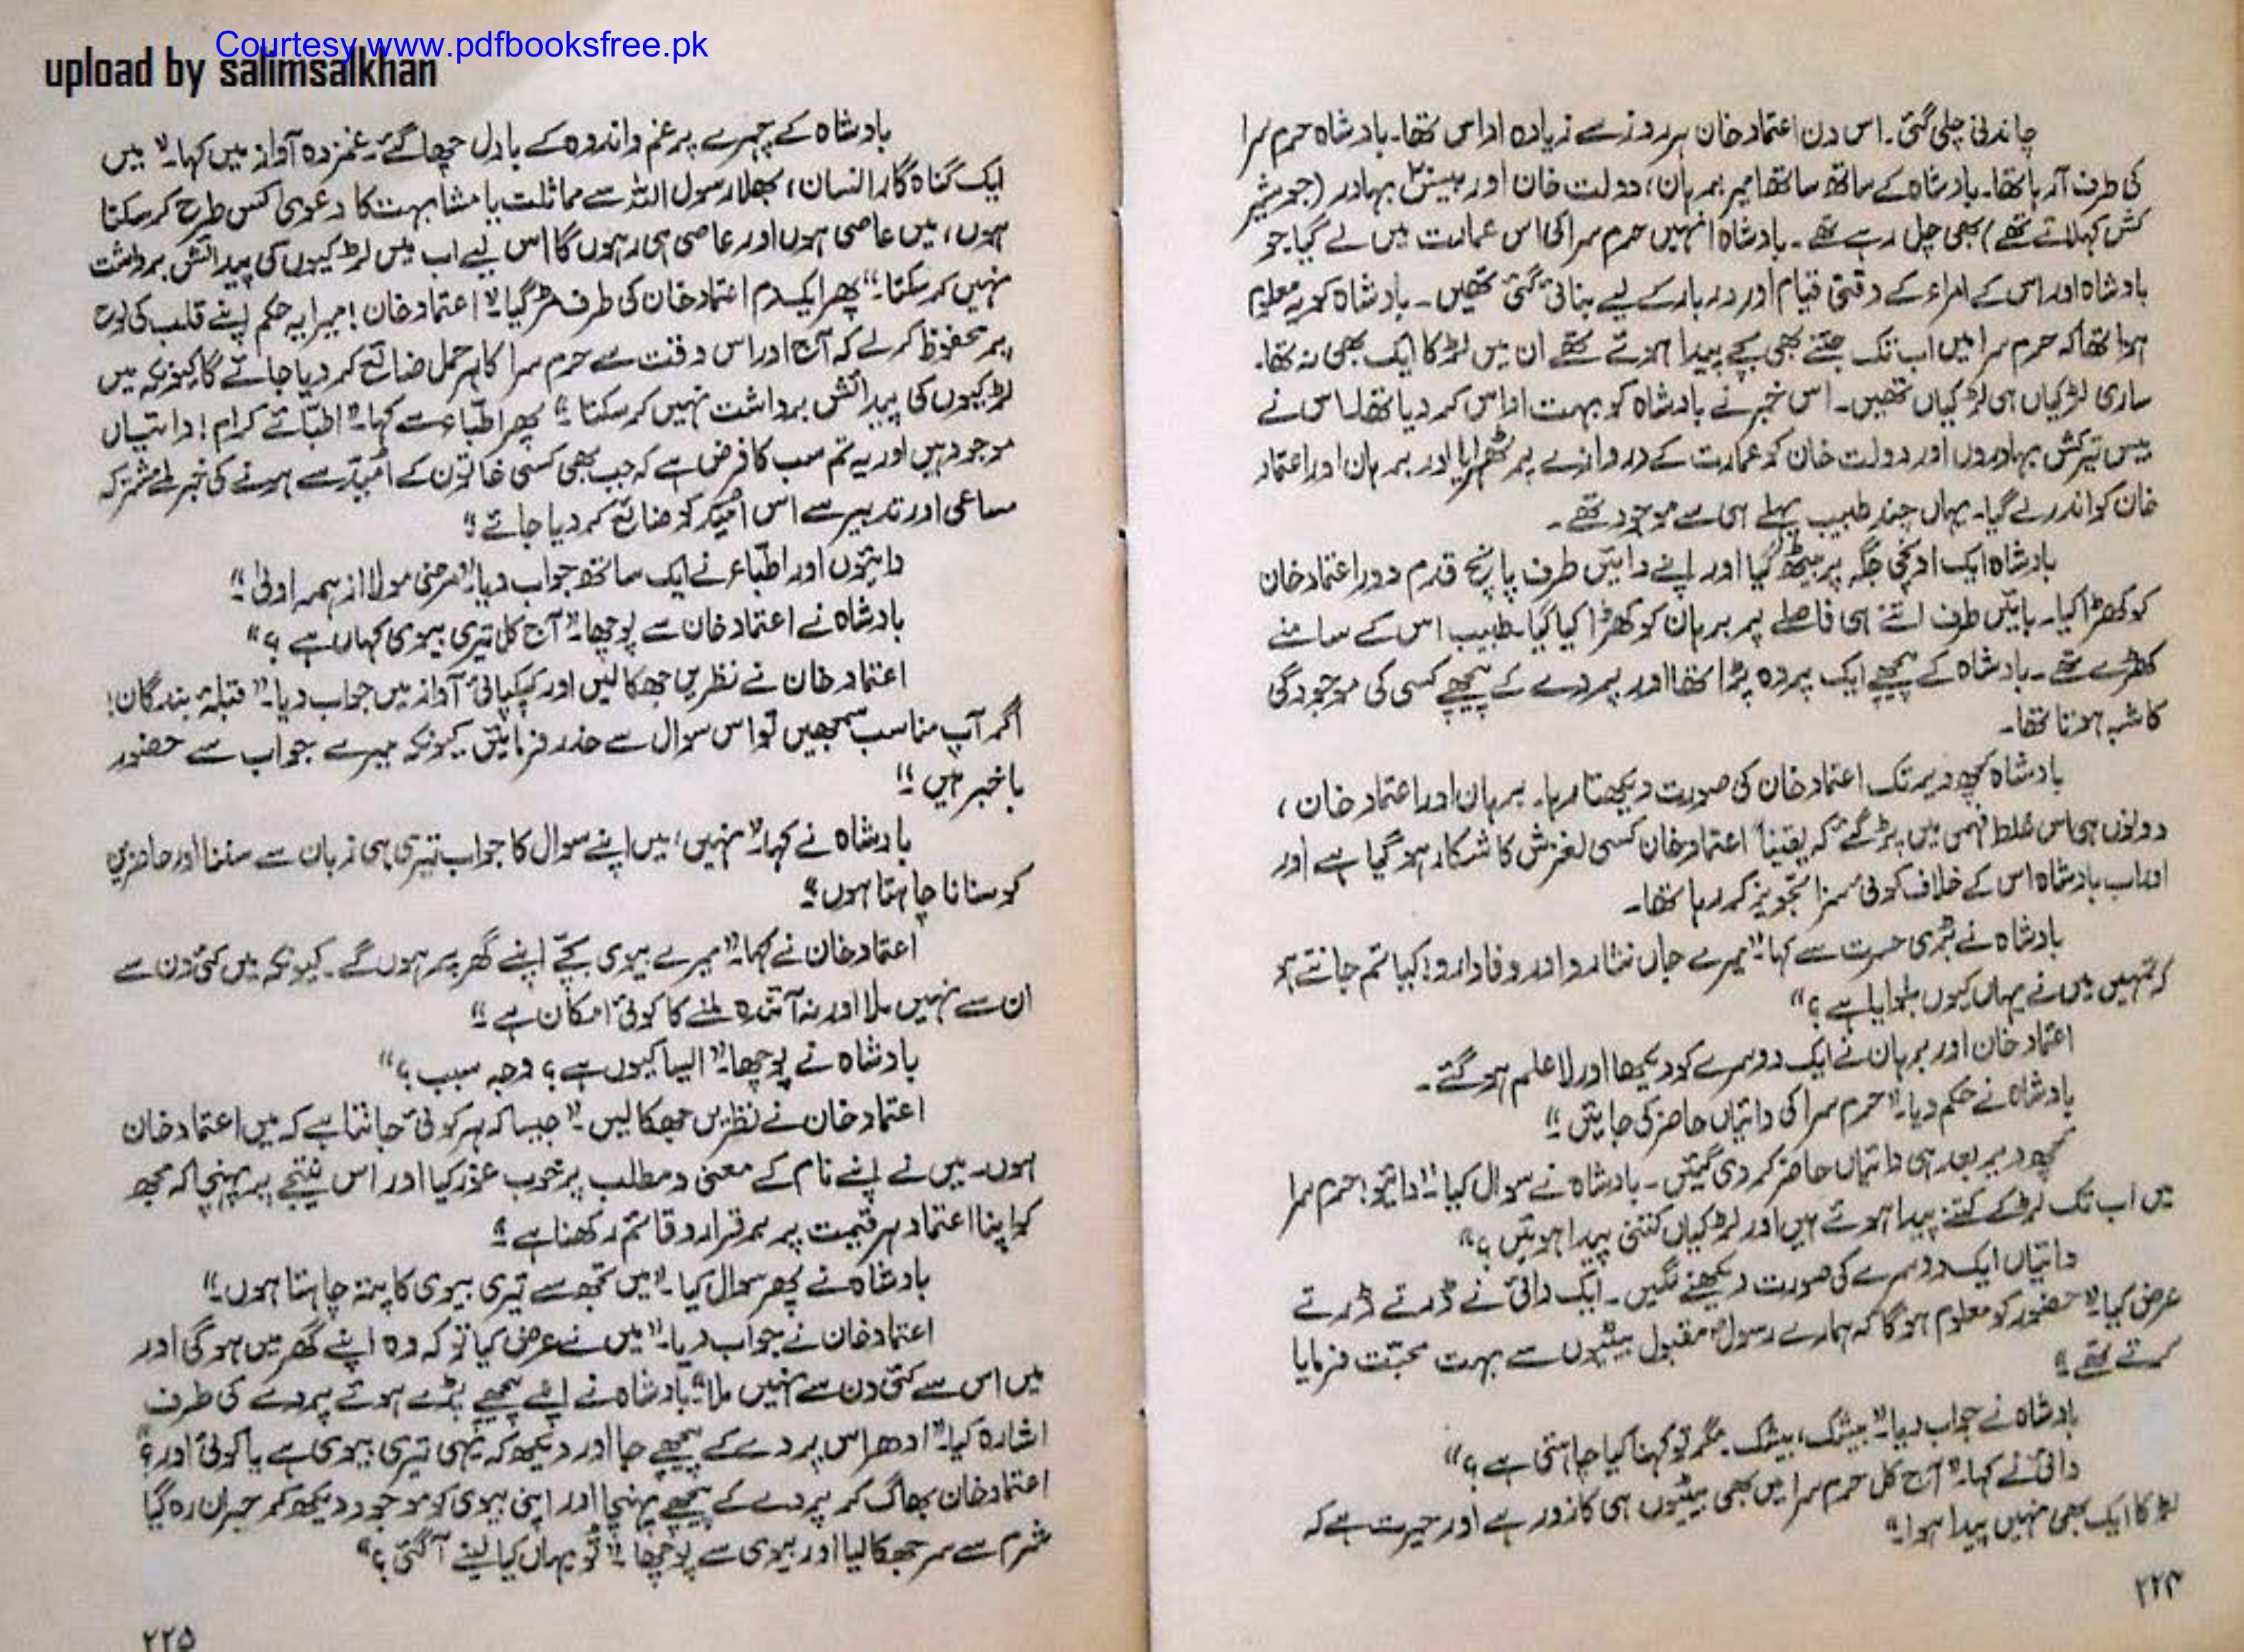 Courtesy www.pdfbooksfree.pk
upload by salimsalkhan
چاندنی چلی گئی۔ اس دن اعتماد خان ہر روز سے زیادہ اداس تھا۔ بادشاہ حرم سرا
کی طرف آ رہا تھا۔ بادشاہ کے ساتھ ساتھ امیر برہان، دولت خان اور بیس بہادر (جو شیر
کش کہلاتے تھے) بھی چل رہے تھے۔ بادشاہ انہیں حرم سرا کی اس عمارت میں لے گیا جو
بادشاہ اور اس کے امراء کے وقتی قیام اور دربار کے لیے بنائی گئی تھیں۔ بادشاہ کو یہ معلوم
ہوا تھا کہ حرم سرا میں اب تک جتنے بھی بچے پیدا ہوئے تھے ان میں لڑکا ایک بھی نہ تھا۔
ساری لڑکیاں ہی لڑکیاں تھیں۔ اس خبر نے بادشاہ کو بہت اداس کر دیا تھا۔ اس نے
بیس بہادروں اور دولت خان کو عمارت کے دروازے پر ٹھہرایا اور برہان اور اعتماد
خان کو اندر لے گیا۔ یہاں چند طبیب پہلے ہی سے موجود تھے۔
بادشاہ ایک اونچی جگہ پر بیٹھ گیا اور اپنے دائیں طرف پانچ قدم دور اعتماد خان
کو کھڑا کیا۔ بائیں طرف اتنے ہی فاصلے پر برہان کو کھڑا کیا گیا۔ طبیب اس کے سامنے
کھڑے تھے۔ بادشاہ کے پیچھے ایک پردہ پڑا تھا اور پردے کے پیچھے کسی کی موجودگی
کا شبہ ہوتا تھا۔
بادشاہ کچھ دیر تک اعتماد خان کی صورت دیکھتا رہا۔ برہان اور اعتماد خان،
دونوں ہی اس غلط فہمی میں پڑ گئے کہ یقیناً اعتماد خان کسی لغزش کا شکار ہو گیا ہے اور
اور اب بادشاہ اس کے خلاف کوئی سزا تجویز کر رہا تھا۔
بادشاہ نے بڑی حسرت سے کہا۔ "میرے جاں نثارو اور وفادارو! کیا تم جانتے ہو
کہ تمہیں میں نے یہاں کیوں بلوایا ہے؟"
اعتماد خان اور برہان نے ایک دوسرے کو دیکھا اور لاعلم ہو گئے۔
بادشاہ نے حکم دیا۔ "حرم سرا کی دائیاں حاضر کی جائیں۔"
کچھ دیر بعد ہی دائیاں حاضر کر دی گئیں۔ بادشاہ نے سوال کیا۔ "دائیو! حرم سرا
میں اب تک لڑکے کتنے پیدا ہوئے ہیں اور لڑکیاں کتنی پیدا ہوئیں؟"
دائیاں ایک دوسرے کی صورت دیکھنے لگیں۔ ایک دائی نے ڈرتے ڈرتے
عرض کیا۔ "حضور کو معلوم ہو گا کہ ہمارے رسولؐ مقبول بیٹیوں سے بہت محبت فرمایا
کرتے تھے۔"
بادشاہ نے جواب دیا۔ "بیشک، بیشک۔ مگر تو کہنا کیا چاہتی ہے؟"
دائی نے کہا۔ "آج کل حرم سرا میں بھی بیٹیوں ہی کا زور ہے اور حیرت ہے کہ
لڑکا ایک بھی نہیں پیدا ہوا۔"
۲۲۴
بادشاہ کے چہرے پر غم و اندوہ کے بادل چھا گئے۔ غمزدہ آواز میں کہا۔ "میں
ایک گناہ گار انسان، بھلا رسول اللہ سے مماثلت یا مشابہت کا دعویٰ کس طرح کر سکتا
ہوں، میں عاصی ہوں اور عاصی ہی رہوں گا اس لیے اب میں لڑکیوں کی پیدائش برداشت
نہیں کر سکتا۔" پھر ایکدم اعتماد خان کی طرف مڑ گیا۔ "اعتماد خان! میرا یہ حکم اپنے قلب کی لوح
پر محفوظ کر لے کہ آج اور اس وقت سے حرم سرا کا ہر حمل ضائع کر دیا جائے گا کیونکہ میں
لڑکیوں کی پیدائش برداشت نہیں کر سکتا۔" پھر اطبّاء سے کہا۔ "اطبّائے کرام! دائیاں
موجود ہیں اور یہ تم سب کا فرض ہے کہ جب بھی کسی خاتون کے اُمید سے ہونے کی خبر ملے مشترکہ
مساعی اور تدبیر سے اس اُمید کو ضائع کر دیا جائے۔"
دائیوں اور اطبّاء نے ایک ساتھ جواب دیا۔ "مرضی مولا از ہمہ اولیٰ۔"
بادشاہ نے اعتماد خان سے پوچھا۔ "آج کل تیری بیوی کہاں ہے؟"
اعتماد خان نے نظریں جھکا لیں اور کپکپاتی آواز میں جواب دیا۔ "قبلۂ بندگان!
اگر آپ مناسب سمجھیں تو اس سوال سے حذر فرمائیں کیونکہ میرے جواب سے حضور
باخبر ہیں۔"
بادشاہ نے کہا۔ "نہیں، میں اپنے سوال کا جواب تیری ہی زبان سے سننا اور حاضرین
کو سنانا چاہتا ہوں۔"
اعتماد خان نے کہا۔ "میرے بیوی بچّے اپنے گھر پر ہوں گے۔ کیونکہ میں کئی دن سے
ان سے نہیں ملا اور نہ آئندہ ملنے کا کوئی امکان ہے۔"
بادشاہ نے پوچھا۔ "ایسا کیوں ہے؟ وجہ سبب؟"
اعتماد خان نے نظریں جھکا لیں۔ "جیسا کہ ہر کوئی جانتا ہے کہ میں اعتماد خان
ہوں۔ میں نے اپنے نام کے معنی و مطلب پر خوب غور کیا اور اس نتیجے پر پہنچا کہ مجھ
کو اپنا اعتماد ہر قیمت پر برقرار و قائم رکھنا ہے۔"
بادشاہ نے پھر سوال کیا۔ "میں تجھ سے تیری بیوی کا پتہ چاہتا ہوں۔"
اعتماد خان نے جواب دیا۔ "میں نے عرض کیا تو کہ وہ اپنے گھر میں ہو گی اور
میں اس سے کئی دن سے نہیں ملا۔" بادشاہ نے اپنے پیچھے پڑے ہوئے پردے کی طرف
اشارہ کیا۔ "ادھر اس پردے کے پیچھے جا اور دیکھو کہ یہی تیری بیوی ہے یا کوئی اور؟"
اعتماد خان بھاگ کر پردے کے پیچھے پہنچا اور اپنی بیوی کو موجود دیکھ کر حیران رہ گیا
شرم سے سر جھکا لیا اور بیوی سے پوچھا۔ "تُو یہاں کیا لینے آ گئی؟"
۲۲۵